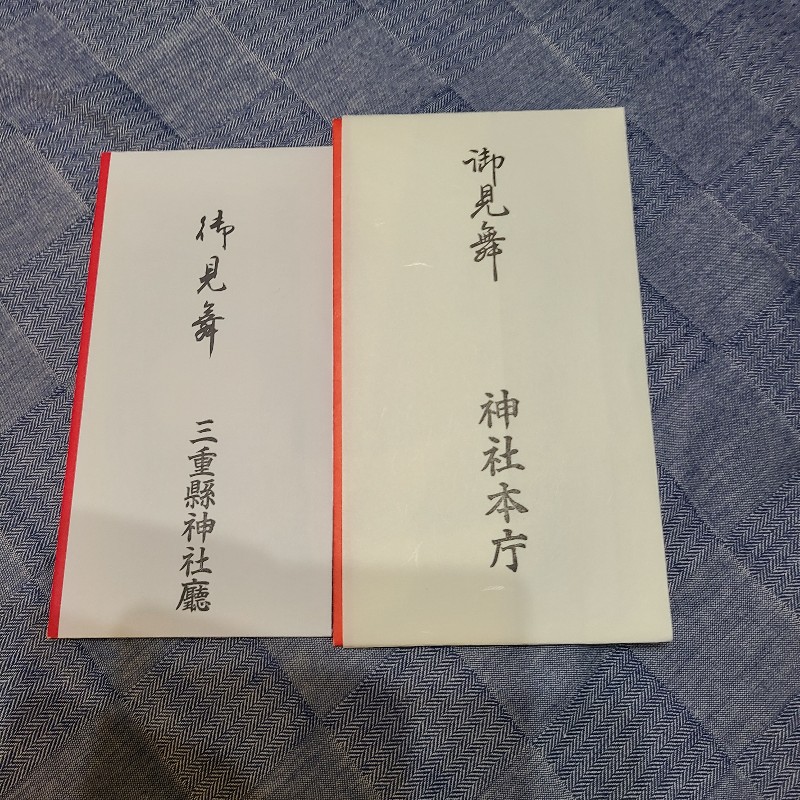 御見舞
三重縣神社廳
御見舞
神社本庁